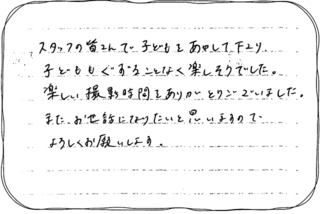 スタッフの皆さんで子どもをあやして下さり
子どももぐずることなく楽しそうでした。
楽しい撮影時間をありがとうございました。
また お世話になりたいと思いますので
よろしくお願いします。